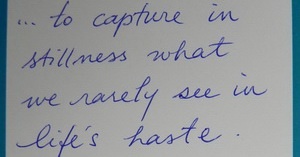 ... to capture in
stillness what
we rarely see in
life's haste.